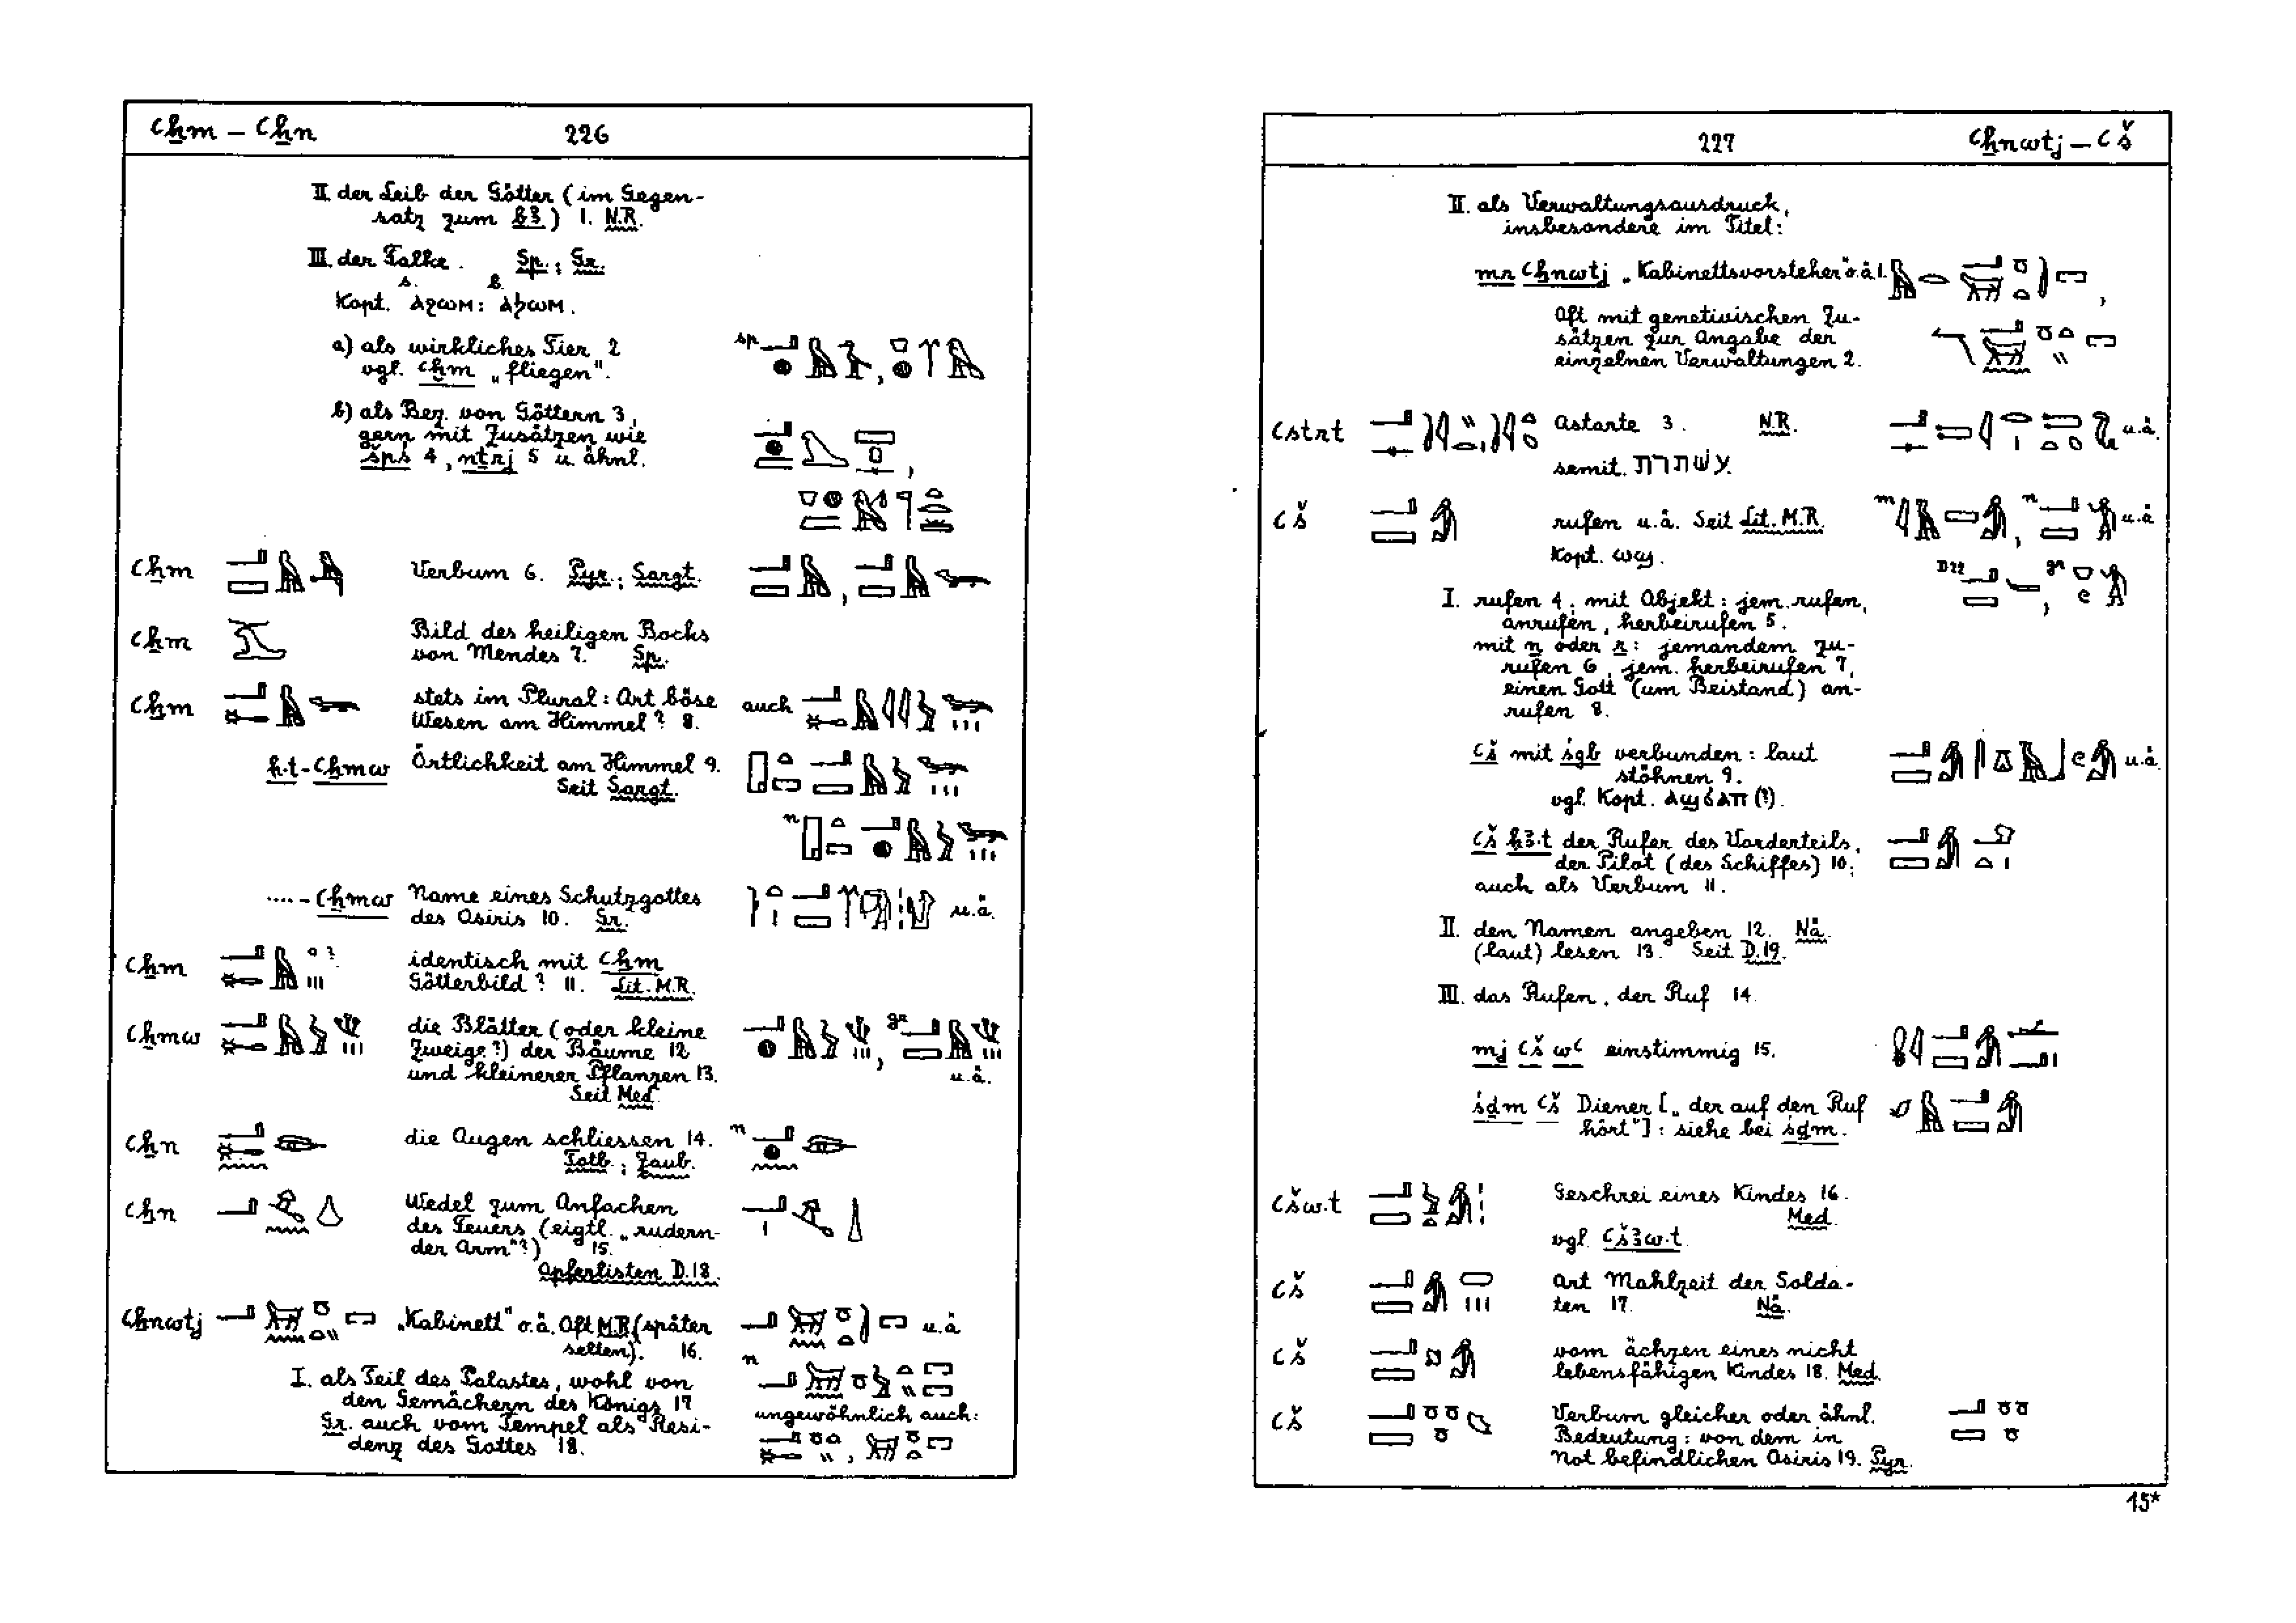 Ꜥẖm – Ꜥẖn 226
II. der Leib der Götter (im Gegen-
satz zum b3) 1. N.R.
III. der Falke. Sp.; Gr.
Kopt. s. ⲁϩⲱⲙ : b. ⲁϧⲱⲙ.
a) als wirkliches Tier 2
vgl. Ꜥḫm „fliegen".
sp
b) als Bez. von Göttern 3,
gern mit Zusätzen wie
špś 4, nṯrj 5 u. ähnl.
Ꜥẖm Verbum 6. Pyr.; Sargt.
Ꜥẖm Bild des heiligen Bocks
von Mendes 7. Sp.
Ꜥẖm stets im Plural: Art böse auch
Wesen am Himmel? 8.
ḥ.t-Ꜥẖmw Örtlichkeit am Himmel 9.
Seit Sargt.
n
....-Ꜥẖmw Name eines Schutzgottes u.ä.
des Osiris 10. Gr.
Ꜥẖm identisch mit Ꜥẖm
Götterbild? 11. Lit. M.R.
Ꜥẖmw die Blätter (oder kleine gr
Zweige?) der Bäume 12
und kleinerer Pflanzen 13. u.ä.
Seit Med.
Ꜥẖn die Augen schliessen 14. n
Totb.; Zaub.
Ꜥẖn Wedel zum Anfachen
des Feuers (eigtl. „rudern-
der Arm"?) 15.
Opferlisten D.18.
Ꜥẖnwtj „Kabinett" o.ä. Oft M.R. (später u.ä
selten). 16. n
I. als Teil des Palastes, wohl von
den Gemächern des Königs 17
Gr. auch vom Tempel als Resi- ungewöhnlich auch:
denz des Gottes 18.
227 Ꜥẖnwtj – Ꜥš
II. als Verwaltungsausdruck,
insbesondere im Titel:
mr Ꜥẖnwtj „Kabinettsvorsteher" o.ä 1.
Oft mit genetivischen Zu-
sätzen zur Angabe der
einzelnen Verwaltungen 2.
Ꜥstrt Astarte 3. N.R. u.ä.
semit. עשתרת.
Ꜥš rufen u.ä. Seit Lit. M.R. m n u.ä
Kopt. ⲱϣ. D22 gr
I. rufen 4; mit Objekt: jem. rufen,
anrufen, herbeirufen 5.
mit n oder r: jemandem zu-
rufen 6, jem. herbeirufen 7,
einen Gott (um Beistand) an-
rufen 8.
Ꜥš mit śgb verbunden: laut u.ä.
stöhnen 9.
vgl. Kopt. ⲁϣϭⲁⲡ (?).
Ꜥš ḥ3.t der Rufer des Vorderteils,
der Pilot (des Schiffes) 10;
auch als Verbum 11.
II. den Namen angeben 12. Nä.
(laut) lesen 13. Seit D.19.
III. das Rufen, der Ruf 14.
mj Ꜥš wꜤ einstimmig 15.
śḏm Ꜥš Diener [„der auf den Ruf
hört"]: siehe bei śḏm.
Ꜥšw.t Geschrei eines Kindes 16.
Med.
vgl. Ꜥš3w.t.
Ꜥš Art Mahlzeit der Solda-
ten 17. Nä.
Ꜥš vom ächzen eines nicht
lebensfähigen Kindes 18. Med.
Ꜥš Verbum gleicher oder ähnl.
Bedeutung: von dem in
Not befindlichen Osiris 19. Pyr.
15*